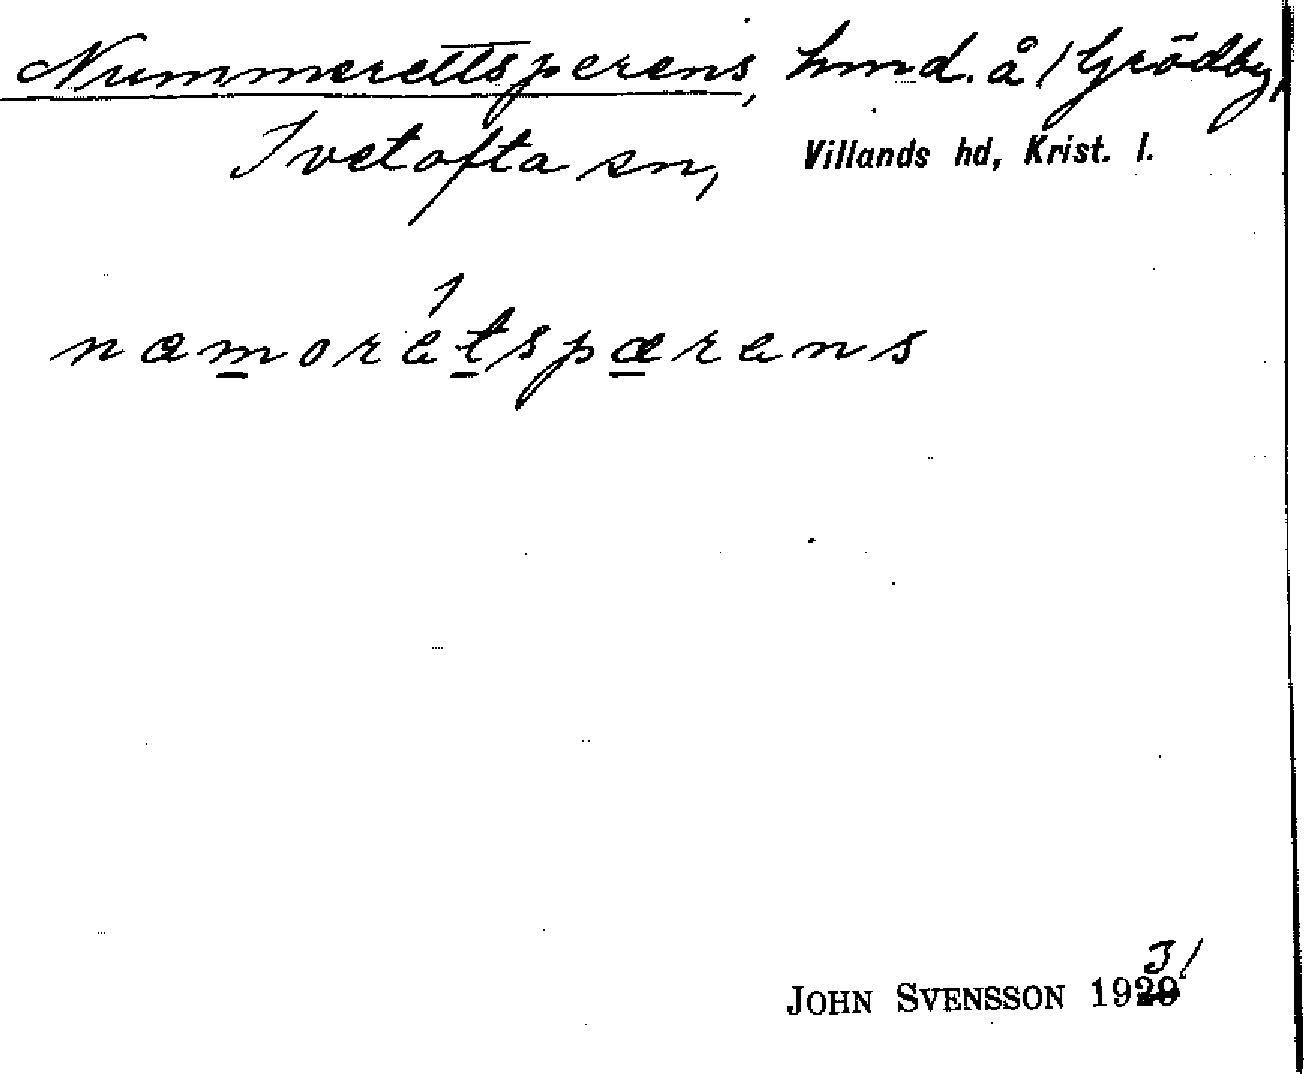 Nummerettsperens, hmd. å /Grödby,
Ivetofta sn, Villands hd, Krist. l.
1
næmorétspærens
31
JOHN SVENSSON 1920